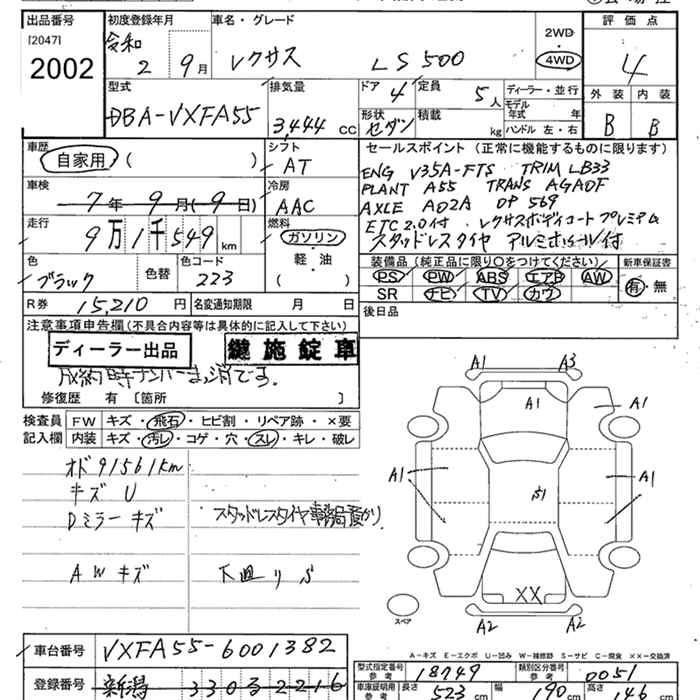 出品番号 初度登録年月 車名・グレード 2WD 評価点
[2047] 令和
2002 2 9月 レクサス LS 500 4WD 4
型式 排気量 ドア 4 定員 5人 ディーラー・並行 外装 内装
DBA-VXFA55 3,444 CC 形状 セダン 積載 kg モデル年式 年 B B
ハンドル 左・右
車歴 シフト セールスポイント (正常に機能するものに限ります)
自家用 ( ) AT ENG V35A-FTS TRIM LB33
車検 冷房 PLANT A55 TRANS AGA0F
7年 9月 (9日) AAC AXLE A02A OP 569
走行 燃料 ETC2.0付 レクサスボディコート プレミアム
9万1千549km ガソリン スタッドレスタイヤ アルミホイール付
軽・油
( )
色 色替 色コード 装備品 (純正品に限り○をつけてください) 新車保証書
ブラック 223 PS PW ABS エアB AW 有・無
SR ナビ TV カワ
R券 15,210円 名変通知期限 月 日 後日品
注意事項申告欄(不具合内容等は具体的に記入して下さい)
ディーラー出品
成約時ナンバーまっ消です。
修復歴 有 〔箇所 〕
検査員 FW キズ・飛石・ヒビ割・リペア跡・×要
記入欄 内装 キズ・汚レ・コゲ・穴・スレ・キレ・破レ
オド91561km
キズ U
Dミラーキズ スタッドレスタイヤ事務局預かり
AWキズ 下廻りS
A1 A3
A1 A1
A1 A1
S1
XX
A2 A2
スペア
A-キズ E-エクボ U-凹み W-補修跡 S-サビ C-腐食 XX-交換済
車台番号 VXFA55-6001382
型式指定番号 参考 18749 類別区分番号 参考 0051
登録番号 新潟 330 ス 2216
車庫証明用 参考 長さ 523cm 幅 190cm 高さ 146cm